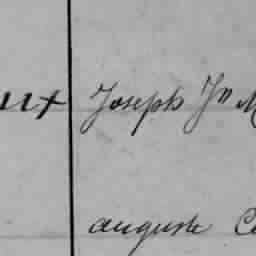 ux Joseph Jn M
auguste C